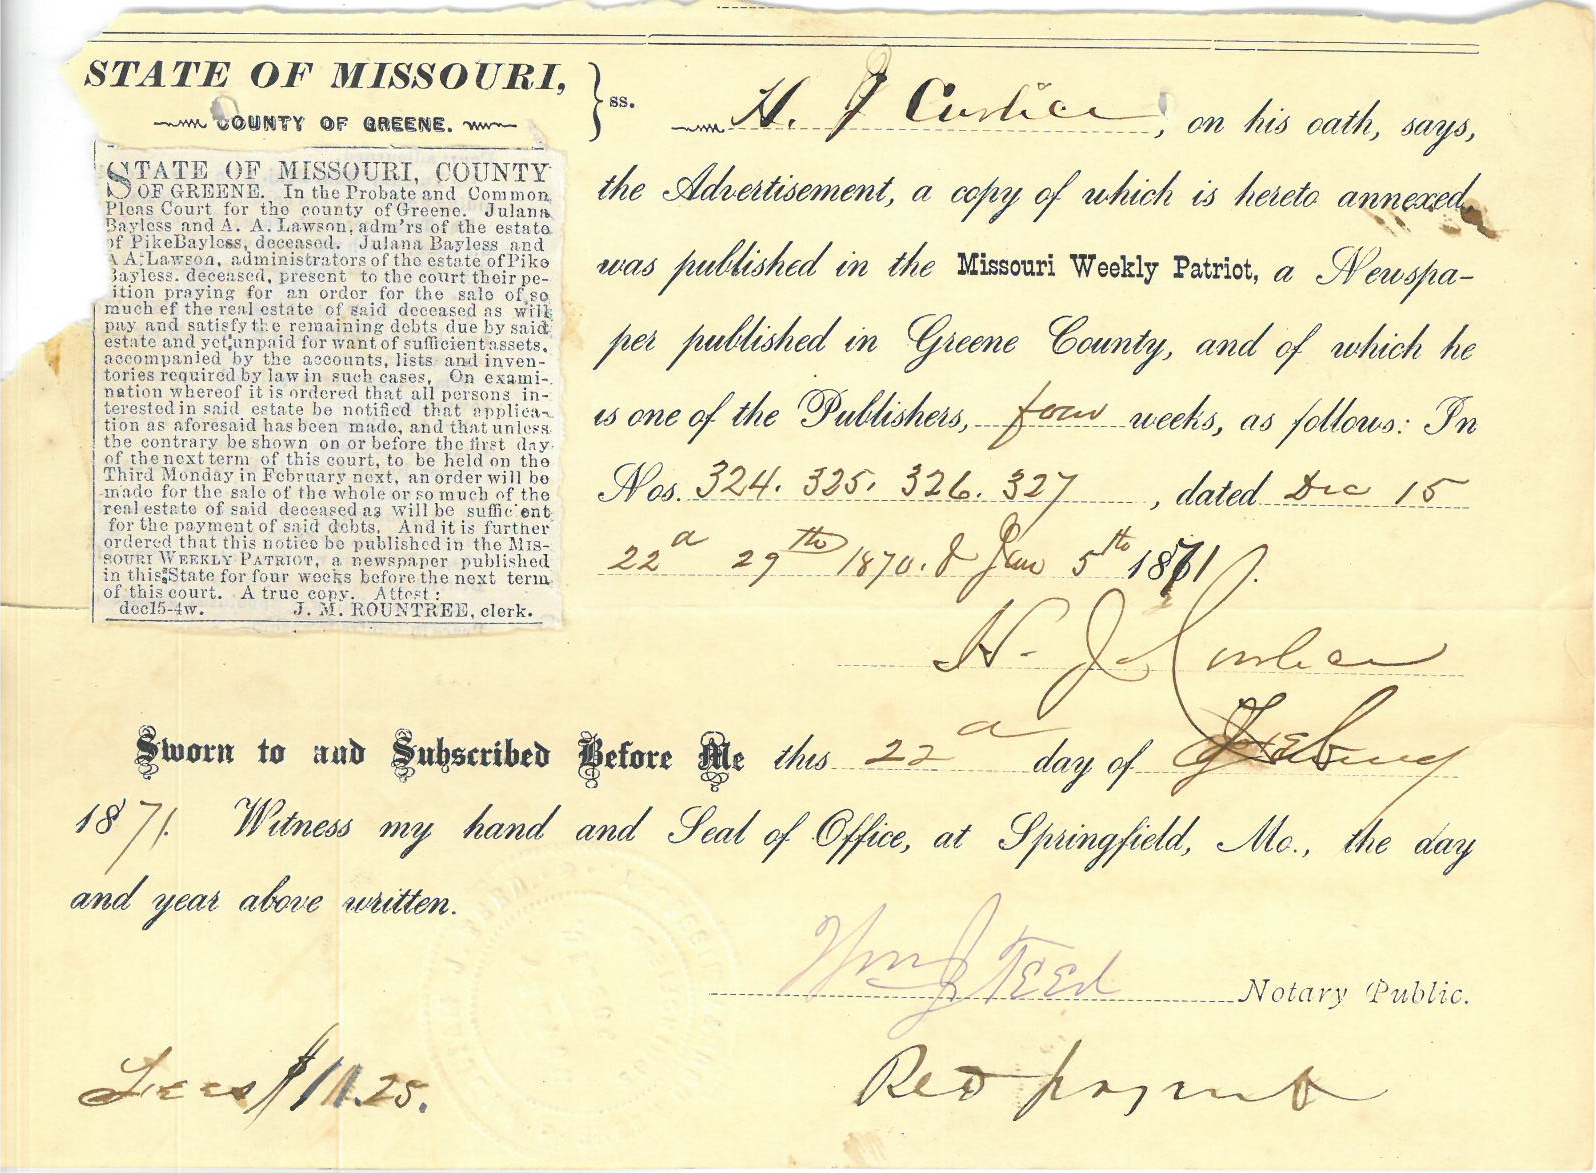 STATE OF MISSOURI,
COUNTY OF GREENE.
} ss.
STATE OF MISSOURI, COUNTY
OF GREENE. In the Probate and Common
Pleas Court for the county of Greene. Julana
Bayless and A. A. Lawson, adm'rs of the estate
of Pike Bayless, deceased. Julana Bayless and
A A. Lawson, administrators of the estate of Pike
Bayless. deceased, present to the court their pe-
ition praying for an order for the sale of so
much ef the real estate of said deceased as will
pay and satisfy the remaining debts due by said
estate and yet unpaid for want of sufficient assets,
accompanied by the accounts, lists and inven-
tories required by law in such cases. On exami-
nation whereof it is ordered that all persons in-
terested in said estate be notified that applica-
tion as aforesaid has been made, and that unless
the contrary be shown on or before the first day
of the next term of this court, to be held on the
Third Monday in February next, an order will be
made for the sale of the whole or so much of the
real estate of said deceased as will be sufficient
for the payment of said debts. And it is further
ordered that this notice be published in the MIS-
SOURI WEEKLY PATRIOT, a newspaper published
in this State for four weeks before the next term
of this court. A true copy. Attest:
dec15-4w. J. M. ROUNTREE, clerk.
H. J Curlice, on his oath, says,
the Advertisement, a copy of which is hereto annexed
was published in the Missouri Weekly Patriot, a Newspa-
per published in Greene County, and of which he
is one of the Publishers, four weeks, as follows: In
Nos. 324. 325. 326. 327, dated Dec 15
22d 29th 1870. & Jan 5th 1871.
H. J. Curlice
Sworn to and Subscribed Before Me this 22d day of
1871. Witness my hand and Seal of Office, at Springfield, Mo., the day
and year above written.
Wm J Teed Notary Public.
Fees $ .25.
Recd payment